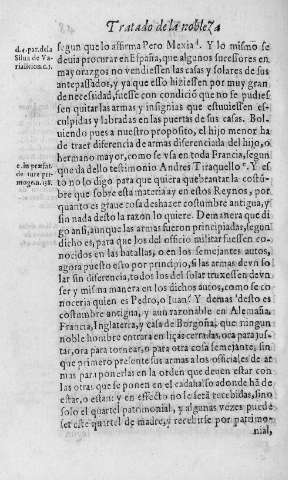 Tratado de la nobleza
segun que lo affirma Pero Mexia d. Y lo mismo se
deuia procurar en España, que algunos sucessores en
mayorazgos no vendiessen las casas y solares de sus
antepassados, y ya que esto hiziessen por muy gran
de necessidad, fuesse con condició que no se pudies
sen quitar las armas y insignias que estuuiessen es-
culpidas y labradas en las puertas de sus casas. Bol-
uiendo pues a nuestro proposito, el hijo menor ha
de traer diferencia de armas diferenciada del hijo, o
hermano mayor, como se vsa en toda Francia, segun
que da dello testimonio Andres Tiraquello e. Y es
to no lo digo para que quiera quebrantar la costũ-
bre que sobre esta materia ay en estos Reynos, por
quanto es graue cosa deshazer costumbre antigua, y
sin nada desto la razon lo quiere. Demanera que di
go ansi, aunque las armas fueron principiadas, segun
dicho es, para que los del officio militar fuessen co-
nocidos en las batallas, o en los semejantes autos,
agora puesto esto por principio, si las armas deuẽ so
lar sin diferencia, todos los del solar truxessen deuẽ
ser y misma manera en los dichos autos, como se co
noceria quien es Pedro, o Iuan? Y demas desto es
costumbre antigua, y aun razonable en Alemaña,
Francia, Inglaterra, y casa de Borgoña, que ningun
noble hombre entrara en liças cerradas, ora para jus-
tar, ora para tornear, o para otra cosa semejante, sin
que primero presente sus armas a los officiales de ar
mas para ponerlas en la orden que deuen estar con
las otras que se ponen en el cadahalso adonde hã de
estar, o estan: y en effecto no se serã recebidas, sino
solo el quartel patrimonial, y algunas vezes puede
ser este quartel de madre, y recebirse por patrimo-
nial,
d. 4. par. de la
Silua de Va-
ria lecion. c. 3.
e. in præfat.
de iure pri-
mog. n. 38.